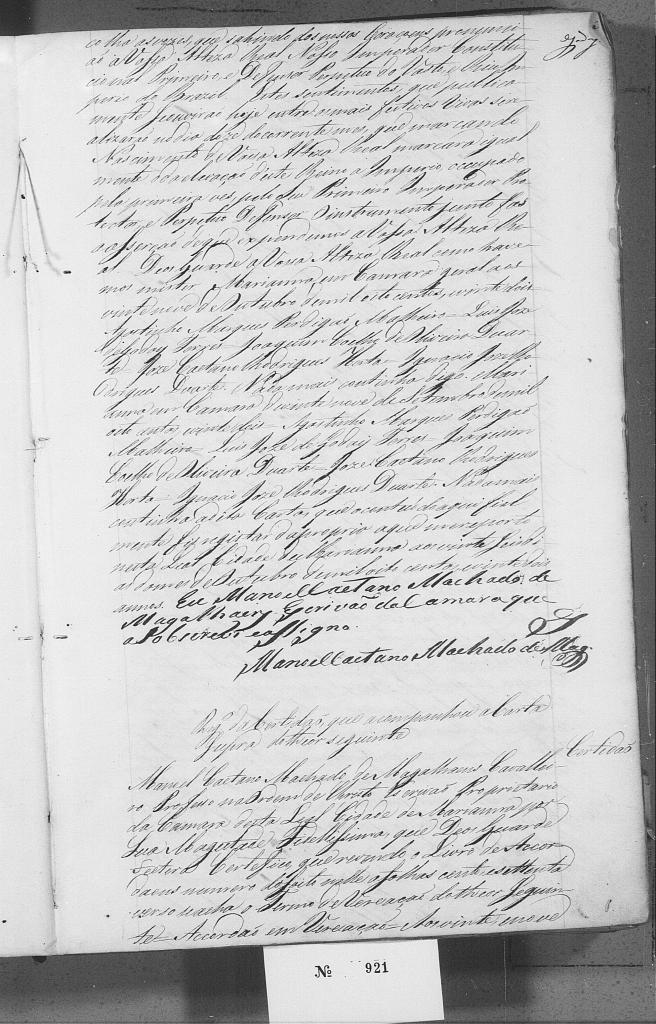 colha as vozes, que sahindo dos nossos Coraçoens pronunci-
aõ a Vossa Alteza Real Nosso Imperador Constitu-
cional Primeiro, e Defensor Perpetuo do Vasto, e Rico Im-
perio do Brazil. Estes sentimentos, que publica-
mente fizeraõ hoje entre os mais festivos Vivas
no dia doze do corrente mes, que marcando o
Nascimento de Vossa Alteza Real marcará igual
mente do a elevaçaõ deste Reino a Imperio, occupado
pela primeira vez pelo seu Primeiro Imperador Pro-
tector, e Perpetuo Defensor. O instrumento junto faz
a asserçaõ do que expendemos a Vossa Alteza Re-
al. Deos Guarde a Vossa Alteza Real como have-
mos mister. Marianna em Camara geral aos
vinte nove de Outubro de mil oito centos, e vinte dois
Agostinho Marques Perdigaõ Malheiro = Luis Joze
de Godoy Torres = Joaquim Coelho de Oliveira Duar-
te = Joze Caetano Rodrigues Horta = Ignacio Joze Ro-
drigues Duarte. Nada mais continha digo. Mari
anna em Camara de vinte nove de Setembro de mil
oito centos, e vinte dois = Agostinho Marques Perdigaõ
Malheiro = Luis Joze de Godoy Torres = Joaquim
Coelho de Oliveira Duarte = Joze Caetano Rodrigues
Horta = Ignacio Joze Rodrigues Duarte. Nada mais
continha a dita Carta, que o contheudo aqui fiel
mente fiz registar da propria a que me reporto
nesta Leal Cidade de Marianna aos vinte seis di-
as do mes de Outubro de mil oito centos, e vinte dois
annos. Eu Manoel Caetano Machado de
Magalhaens Escrivaõ da Camara que
a Sobscrevi e assigno.
Manoel Caetano Machado de Mag.
Reg.º da Certidaõ, que acompanhou a Carta
Supra do theor seguinte
Certidaõ
Manoel Caetano Machado de Magalhaens Cavallei-
ro Professo na Ordem de Christo Escrivaõ Proprietario
da Camara desta Leal Cidade de Marianna por
Sua Magestade Fidelissima, que Deos Guarde
Certefico, que revendo o Livro de Accor-
daons numero a folhas cento, e settenta
verso nelle acha o Termo de Vereaçaõ do theor Seguin-
te = Accordaõ em Vereaçaõ Aos vinte e nove
Nº 921